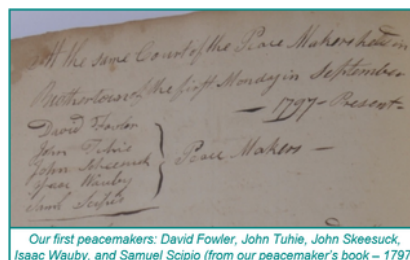 At the same Court of the Peace Makers held in
Brothertown of the first Monday in September
— 1797 – Present –
David Fowler
John Tuhie
John Skeesuck
Isaac Wauby
Saml Scipio
Peace Makers —
Our first peacemakers: David Fowler, John Tuhie, John Skeesuck,
Isaac Wauby, and Samuel Scipio (from our peacemaker's book – 1797